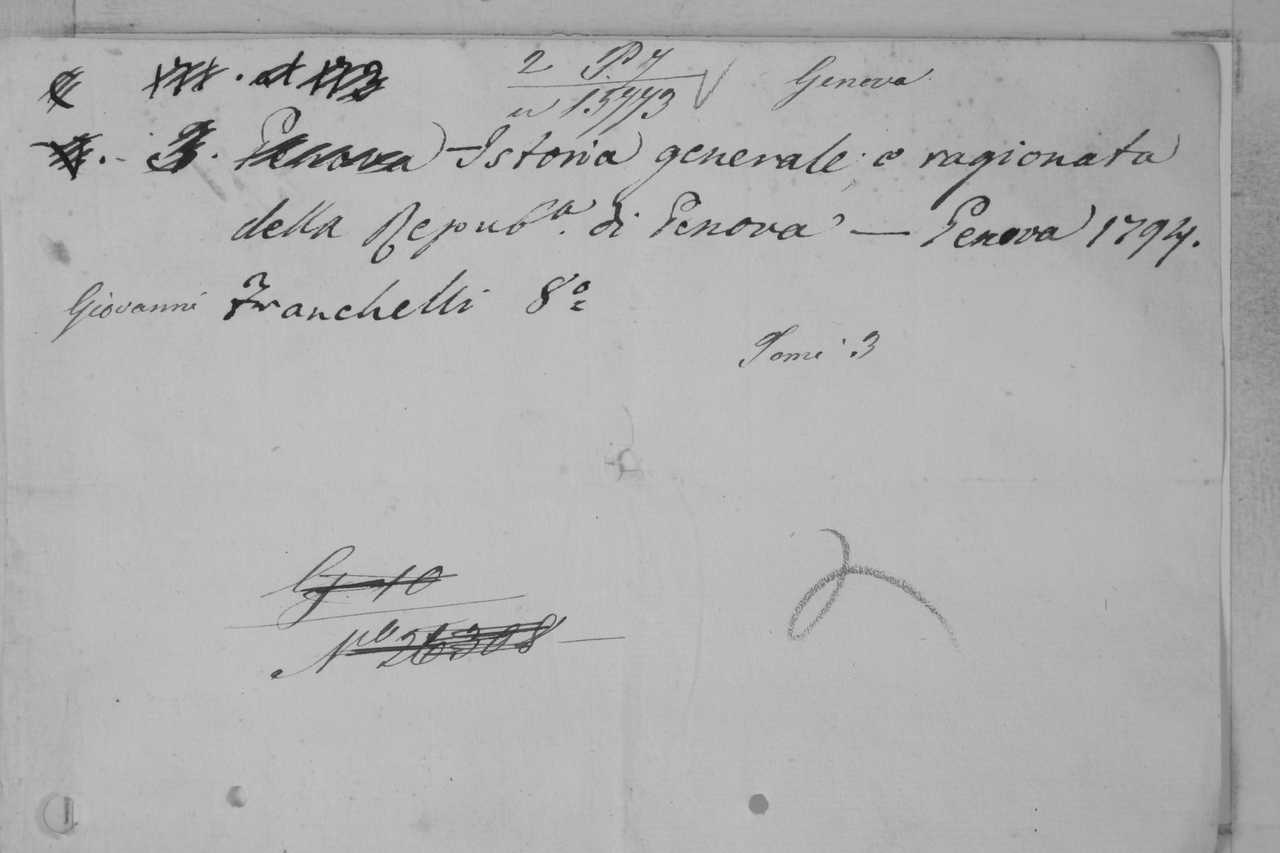 2 P. 7 Genova
n 15773
Genova Istoria generale, e ragionata
della Repub.ª di Genova — Genova 1794.
Giovanni Franchelli 8º
Tomi 3
G. 10
Nº 26308